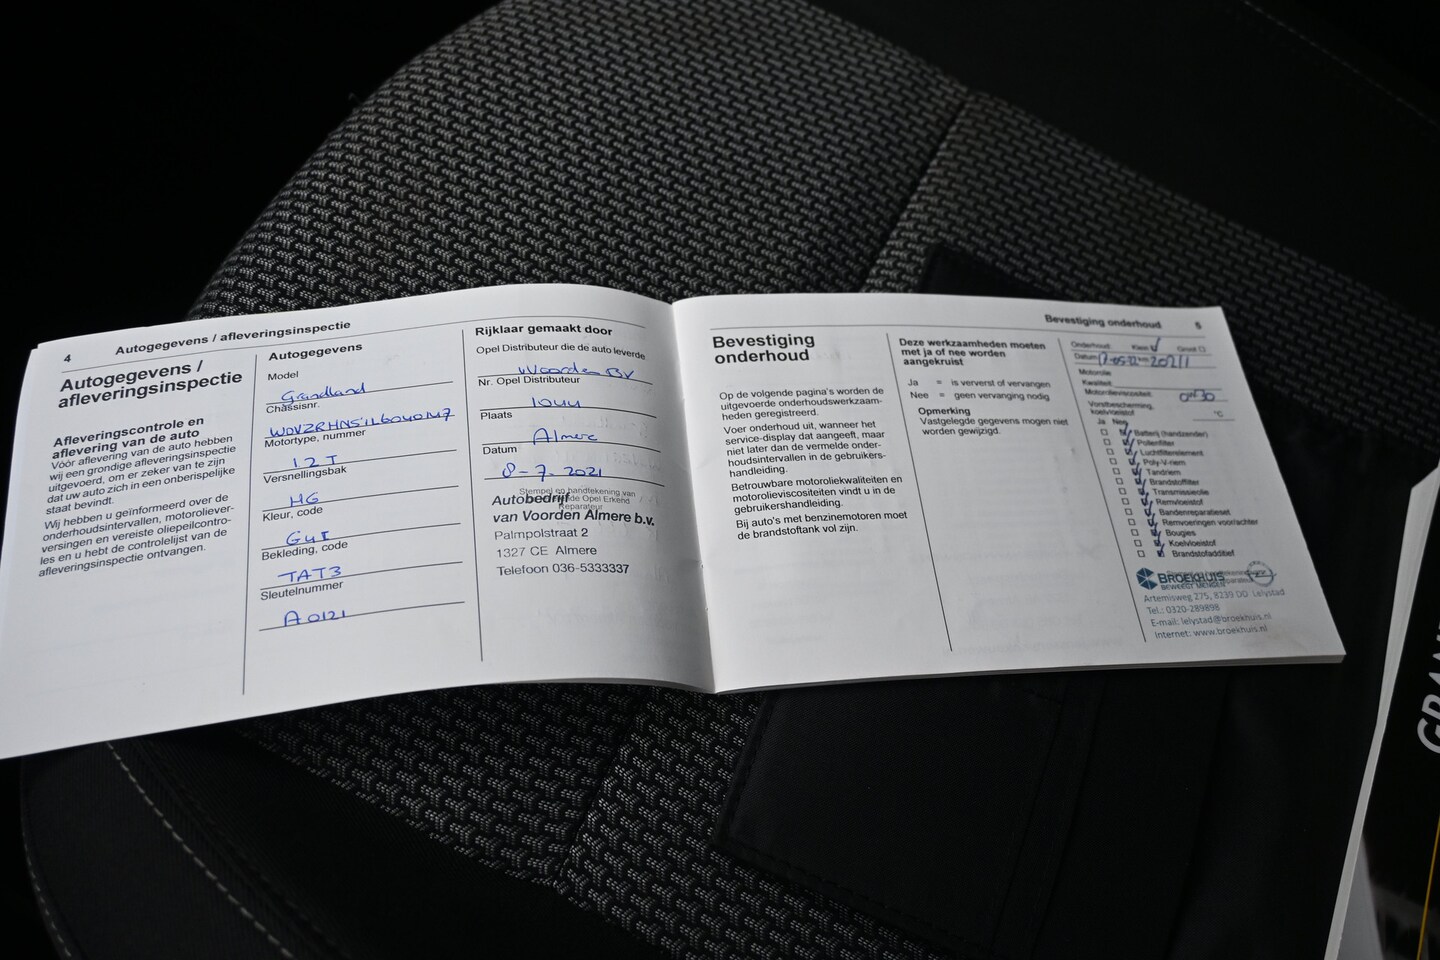 4
Autogegevens / afleveringsinspectie
Autogegevens /
afleveringsinspectie
Afleveringscontrole en
aflevering van de auto
Vóór aflevering van de auto hebben
wij een grondige afleveringsinspectie
uitgevoerd, om er zeker van te zijn
dat uw auto zich in een onberispelijke
staat bevindt.
Wij hebben u geïnformeerd over de
onderhoudsintervallen, motoroliever-
versingen en vereiste oliepeilcontro-
les en u hebt de controlelijst van de
afleveringsinspectie ontvangen.
Autogegevens
Model
Grandland
Chassisnr.
Motortype, nummer
1 2 T
Versnellingsbak
HG
Kleur, code
G4I
Bekleding, code
TAT3
Sleutelnummer
A0121
Rijklaar gemaakt door
Opel Distributeur die de auto leverde
Voorden BV
Nr. Opel Distributeur
1044
Plaats
Almere
Datum
8-7-2021
Stempel en handtekening van
Opel Erkend
Reparateur
Autobedrijf
van Voorden Almere b.v.
Palmpolstraat 2
1327 CE Almere
Telefoon 036-5333337
Bevestiging onderhoud
5
Bevestiging
onderhoud
Op de volgende pagina's worden de
uitgevoerde onderhoudswerkzaam-
heden geregistreerd.
Voer onderhoud uit, wanneer het
service-display dat aangeeft, maar
niet later dan de vermelde onder-
houdsintervallen in de gebruikers-
handleiding.
Betrouwbare motoroliekwaliteiten en
motorolieviscositeiten vindt u in de
gebruikershandleiding.
Bij auto's met benzinemotoren moet
de brandstoftank vol zijn.
Deze werkzaamheden moeten
met ja of nee worden
aangekruist
Ja = is ververst of vervangen
Nee = geen vervanging nodig
Opmerking
Vastgelegde gegevens mogen niet
worden gewijzigd.
Onderhoud: Klein Groot
Datum km
Motorolie
Kwaliteit:
Motorolieviscositeit: 0W30
Vorstbescherming,
koelvloeistof °C
Ja Nee
Batterij (handzender)
Pollenfilter
Luchtfilterelement
Poly-V-riem
Tandriem
Brandstoffilter
Transmissieolie
Remvloeistof
Bandenreparatieset
Remvoeringen voor/achter
Bougies
Koelvloeistof
Brandstofadditief
BROEKHUIS
BEWEEGT MENSEN
Artemisweg 275, 8239 DD Lelystad
Tel.: 0320-289898
E-mail: lelystad@broekhuis.nl
Internet: www.broekhuis.nl